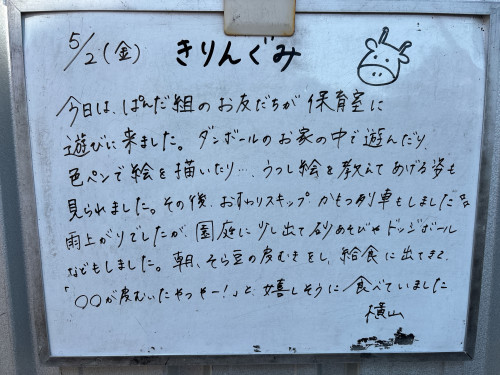 5/2(金) きりんぐみ
今日は、ぱんだ組のお友だちが保育室に
遊びに来ました。ダンボールのお家の中で遊んだり、
色ペンで絵を描いたり…、うつし絵を教えてあげる姿も
見られました。その後、おすわりスキップ かもつ列車もしました
雨上がりでしたが、園庭に少し出て砂あそびやドッジボール
などもしました。朝、そら豆の皮むきをし、給食に出てきて、
「〇〇が皮むいたやつやー!」と、嬉しそうに食べていました
横山